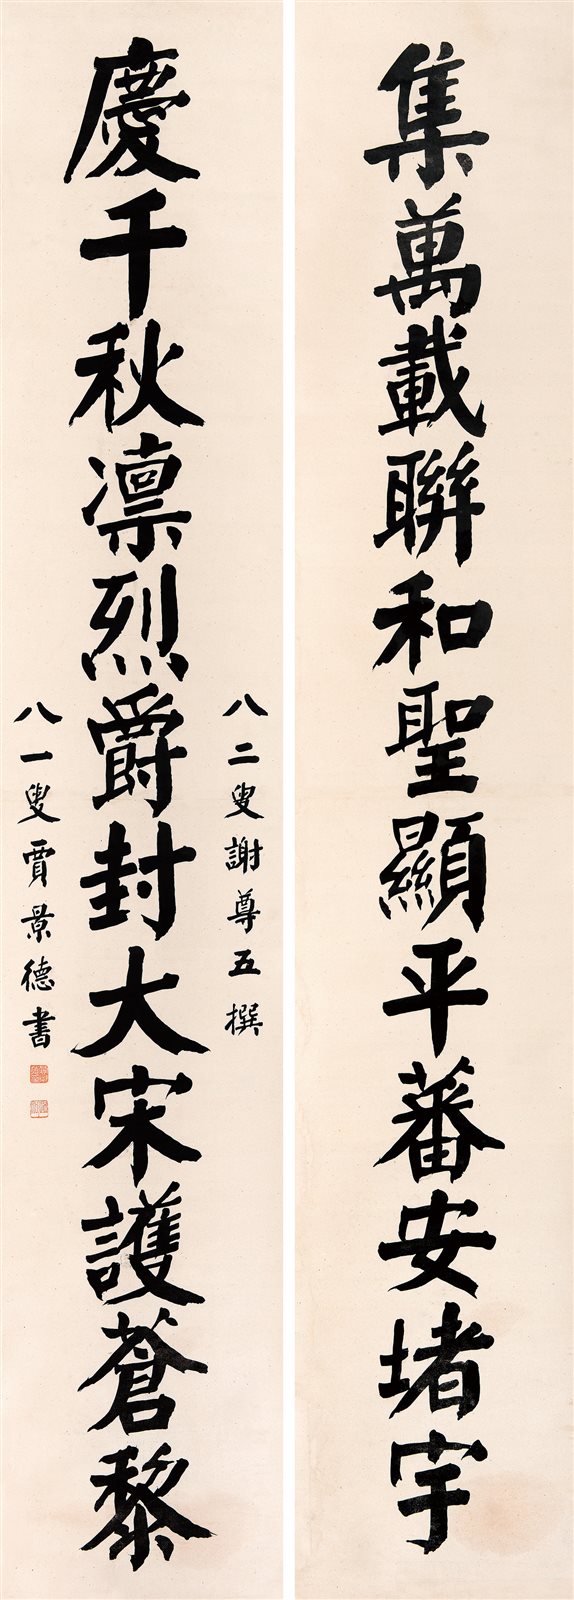 集萬載聯和聖顯平蕃安堵宇
慶千秋凛烈爵封大宋護蒼黎
八二叟謝尊五撰
八一叟賈景德書